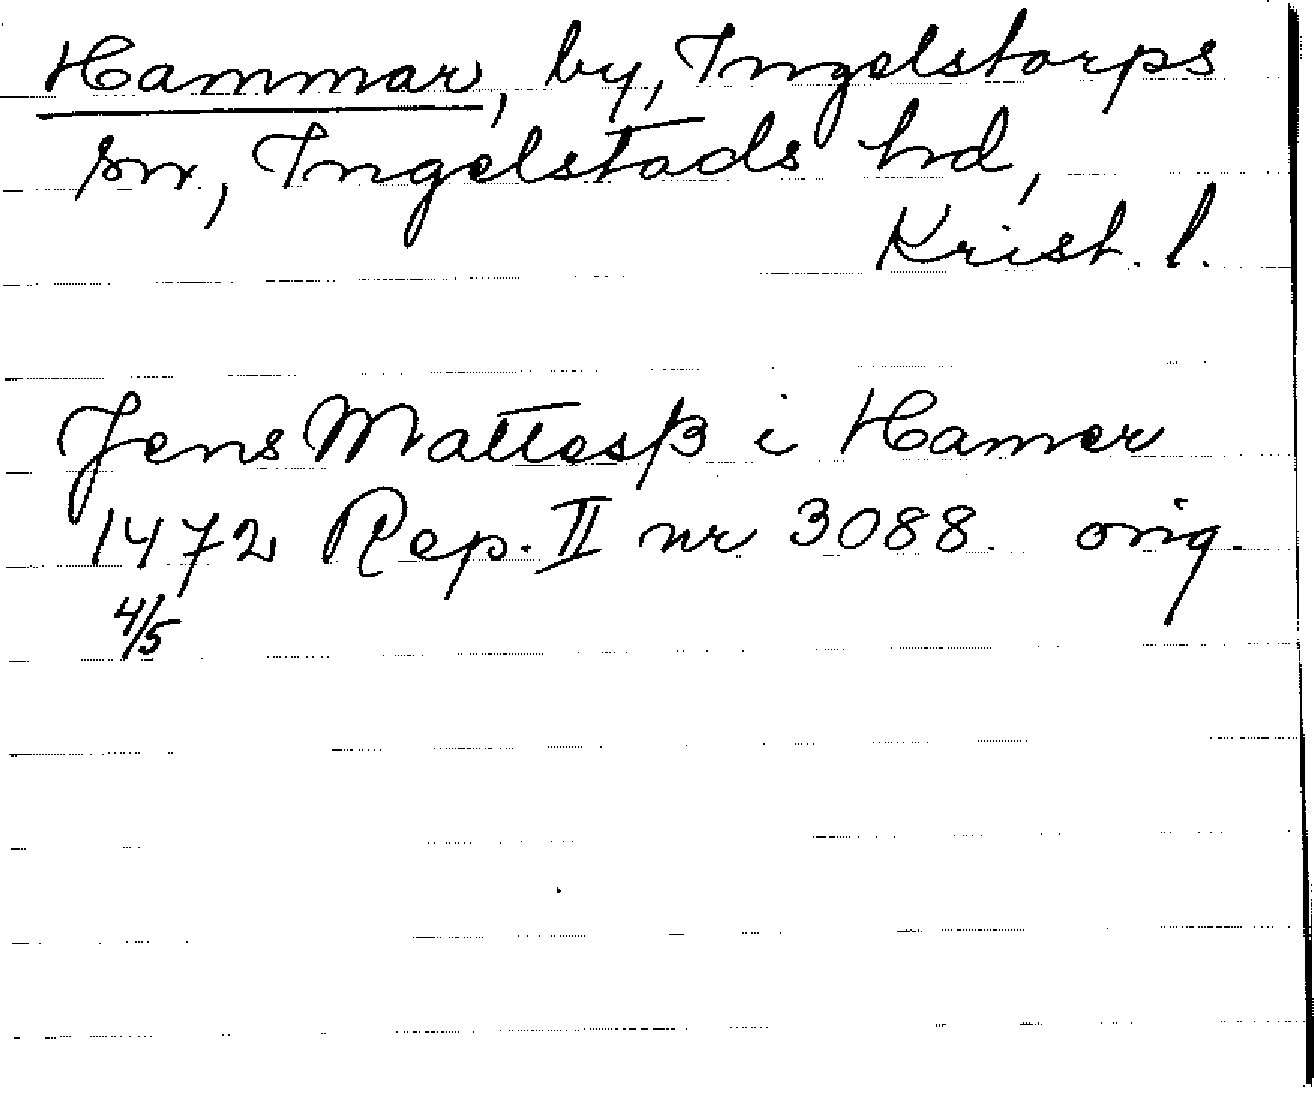 Hammar, by, Ingelstorps
sn, Ingelstads hd,
Krist. l.
Jens Mattesß i Hamer
1472 Rep. II nr 3088 orig.
4/5